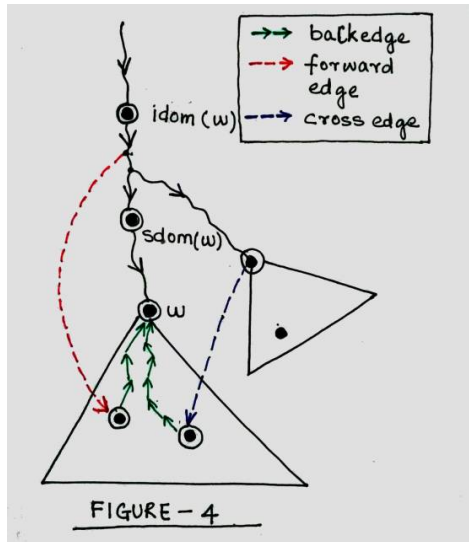 backedge
forward
edge
cross edge
idom (w)
sdom(w)
w
FIGURE - 4